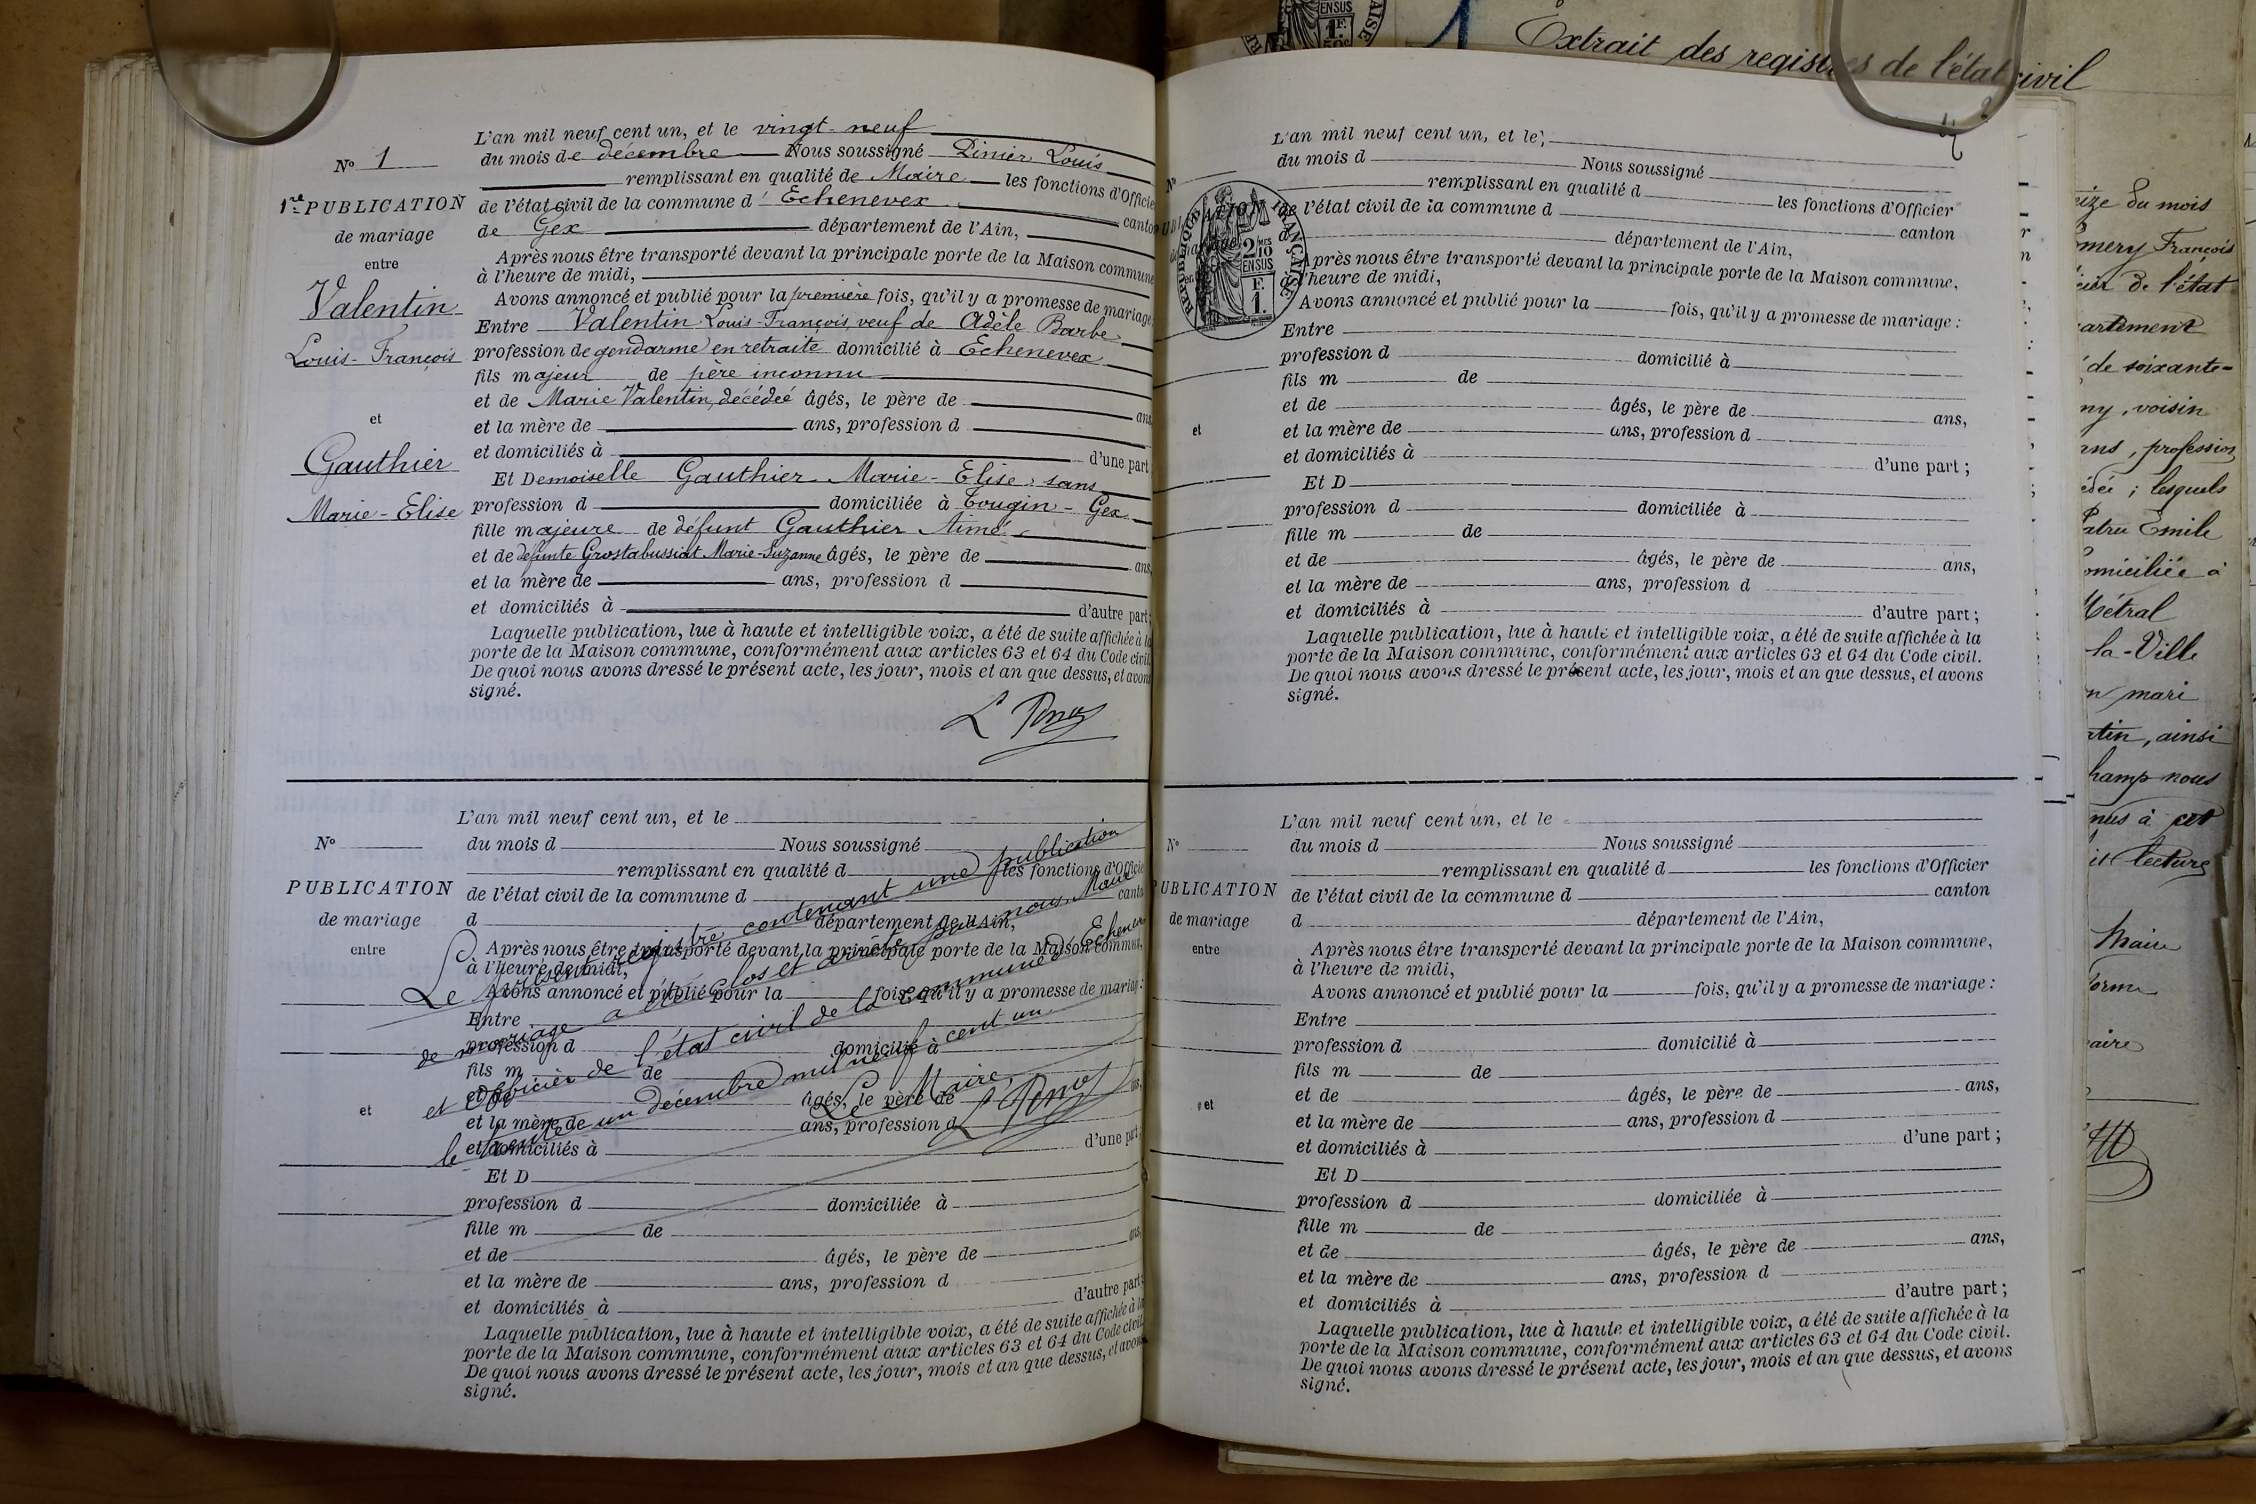 N° 1
1re PUBLICATION
de mariage
entre
Valentin
Louis-François
et
Gauthier
Marie-Elise
L'an mil neuf cent un, et le vingt-neuf
du mois de décembre Nous soussigné Pinier Louis
remplissant en qualité de Maire les fonctions d'Officier
de l'état civil de la commune d'Echenevex canton
de Gex département de l'Ain,
Après nous être transporté devant la principale porte de la Maison commune
à l'heure de midi,
Avons annoncé et publié pour la première fois, qu'il y a promesse de mariage
Entre Valentin Louis-François, veuf de Adèle Barbe
profession de gendarme en retraite domicilié à Echenevex
fils majeur de père inconnu
et de Marie Valentin, décédée âgés, le père de ans
et la mère de ans, profession d
et domiciliés à d'une part
Et Demoiselle Gauthier Marie-Elise, sans
profession d domiciliée à Tougin-Gex
fille majeure de défunt Gauthier Aimé
et de défunte Grostabussiat Marie-Suzanne âgés, le père de ans,
et la mère de ans, profession d
et domiciliés à d'autre part;
Laquelle publication, lue à haute et intelligible voix, a été de suite affichée à la
porte de la Maison commune, conformément aux articles 63 et 64 du Code civil.
De quoi nous avons dressé le présent acte, les jour, mois et an que dessus, et avons
signé.
N°
PUBLICATION
de mariage
entre
et
L'an mil neuf cent un, et le
du mois d Nous soussigné
remplissant en qualité d les fonctions d'Officier
de l'état civil de la commune d canton
d département de l'Ain,
Après nous être transporté devant la principale porte de la Maison commune,
à l'heure de midi,
Avons annoncé et publié pour la fois, qu'il y a promesse de mariage :
Entre
profession d domicilié à
fils m de
et de âgés, le père de ans,
et la mère de ans, profession d
et domiciliés à d'une part;
Et D
profession d domiciliée à
fille m de
et de âgés, le père de ans,
et la mère de ans, profession d
et domiciliés à d'autre part;
Laquelle publication, lue à haute et intelligible voix, a été de suite affichée à la
porte de la Maison commune, conformément aux articles 63 et 64 du Code civil.
De quoi nous avons dressé le présent acte, les jour, mois et an que dessus, et avons
signé.
Le présent registre contenant une publication
de mariage a été clos et arrêté par nous, Maire
et Officier de l'état civil de la commune d'Echenevex
le trente un décembre mil neuf cent un
Le Maire
N°
PUBLICATION
de mariage
et
RÉPUBLIQUE FRANÇAISE
2/10 MES
EN SUS
1 F.
L'an mil neuf cent un, et le
du mois d Nous soussigné
remplissant en qualité d les fonctions d'Officier
de l'état civil de la commune d canton
d département de l'Ain,
Après nous être transporté devant la principale porte de la Maison commune,
à l'heure de midi,
Avons annoncé et publié pour la fois, qu'il y a promesse de mariage :
Entre
profession d domicilié à
fils m de
et de âgés, le père de ans,
et la mère de ans, profession d
et domiciliés à d'une part;
Et D
profession d domiciliée à
fille m de
et de âgés, le père de ans,
et la mère de ans, profession d
et domiciliés à d'autre part;
Laquelle publication, lue à haute et intelligible voix, a été de suite affichée à la
porte de la Maison commune, conformément aux articles 63 et 64 du Code civil.
De quoi nous avons dressé le présent acte, les jour, mois et an que dessus, et avons
signé.
N°
PUBLICATION
de mariage
entre
et
L'an mil neuf cent un, et le
du mois d Nous soussigné
remplissant en qualité d les fonctions d'Officier
de l'état civil de la commune d canton
d département de l'Ain,
Après nous être transporté devant la principale porte de la Maison commune,
à l'heure de midi,
Avons annoncé et publié pour la fois, qu'il y a promesse de mariage :
Entre
profession d domicilié à
fils m de
et de âgés, le père de ans,
et la mère de ans, profession d
et domiciliés à d'une part;
Et D
profession d domiciliée à
fille m de
et de âgés, le père de ans,
et la mère de ans, profession d
et domiciliés à d'autre part;
Laquelle publication, lue à haute et intelligible voix, a été de suite affichée à la
porte de la Maison commune, conformément aux articles 63 et 64 du Code civil.
De quoi nous avons dressé le présent acte, les jour, mois et an que dessus, et avons
signé.
Extrait des registres de l'état civil
du mois
François
de l'état
de soixante-
voisin
profession
lesquels
Emile
à
Métral
la-Ville
mari
ainsi
nous
à cet
lecture
Maire